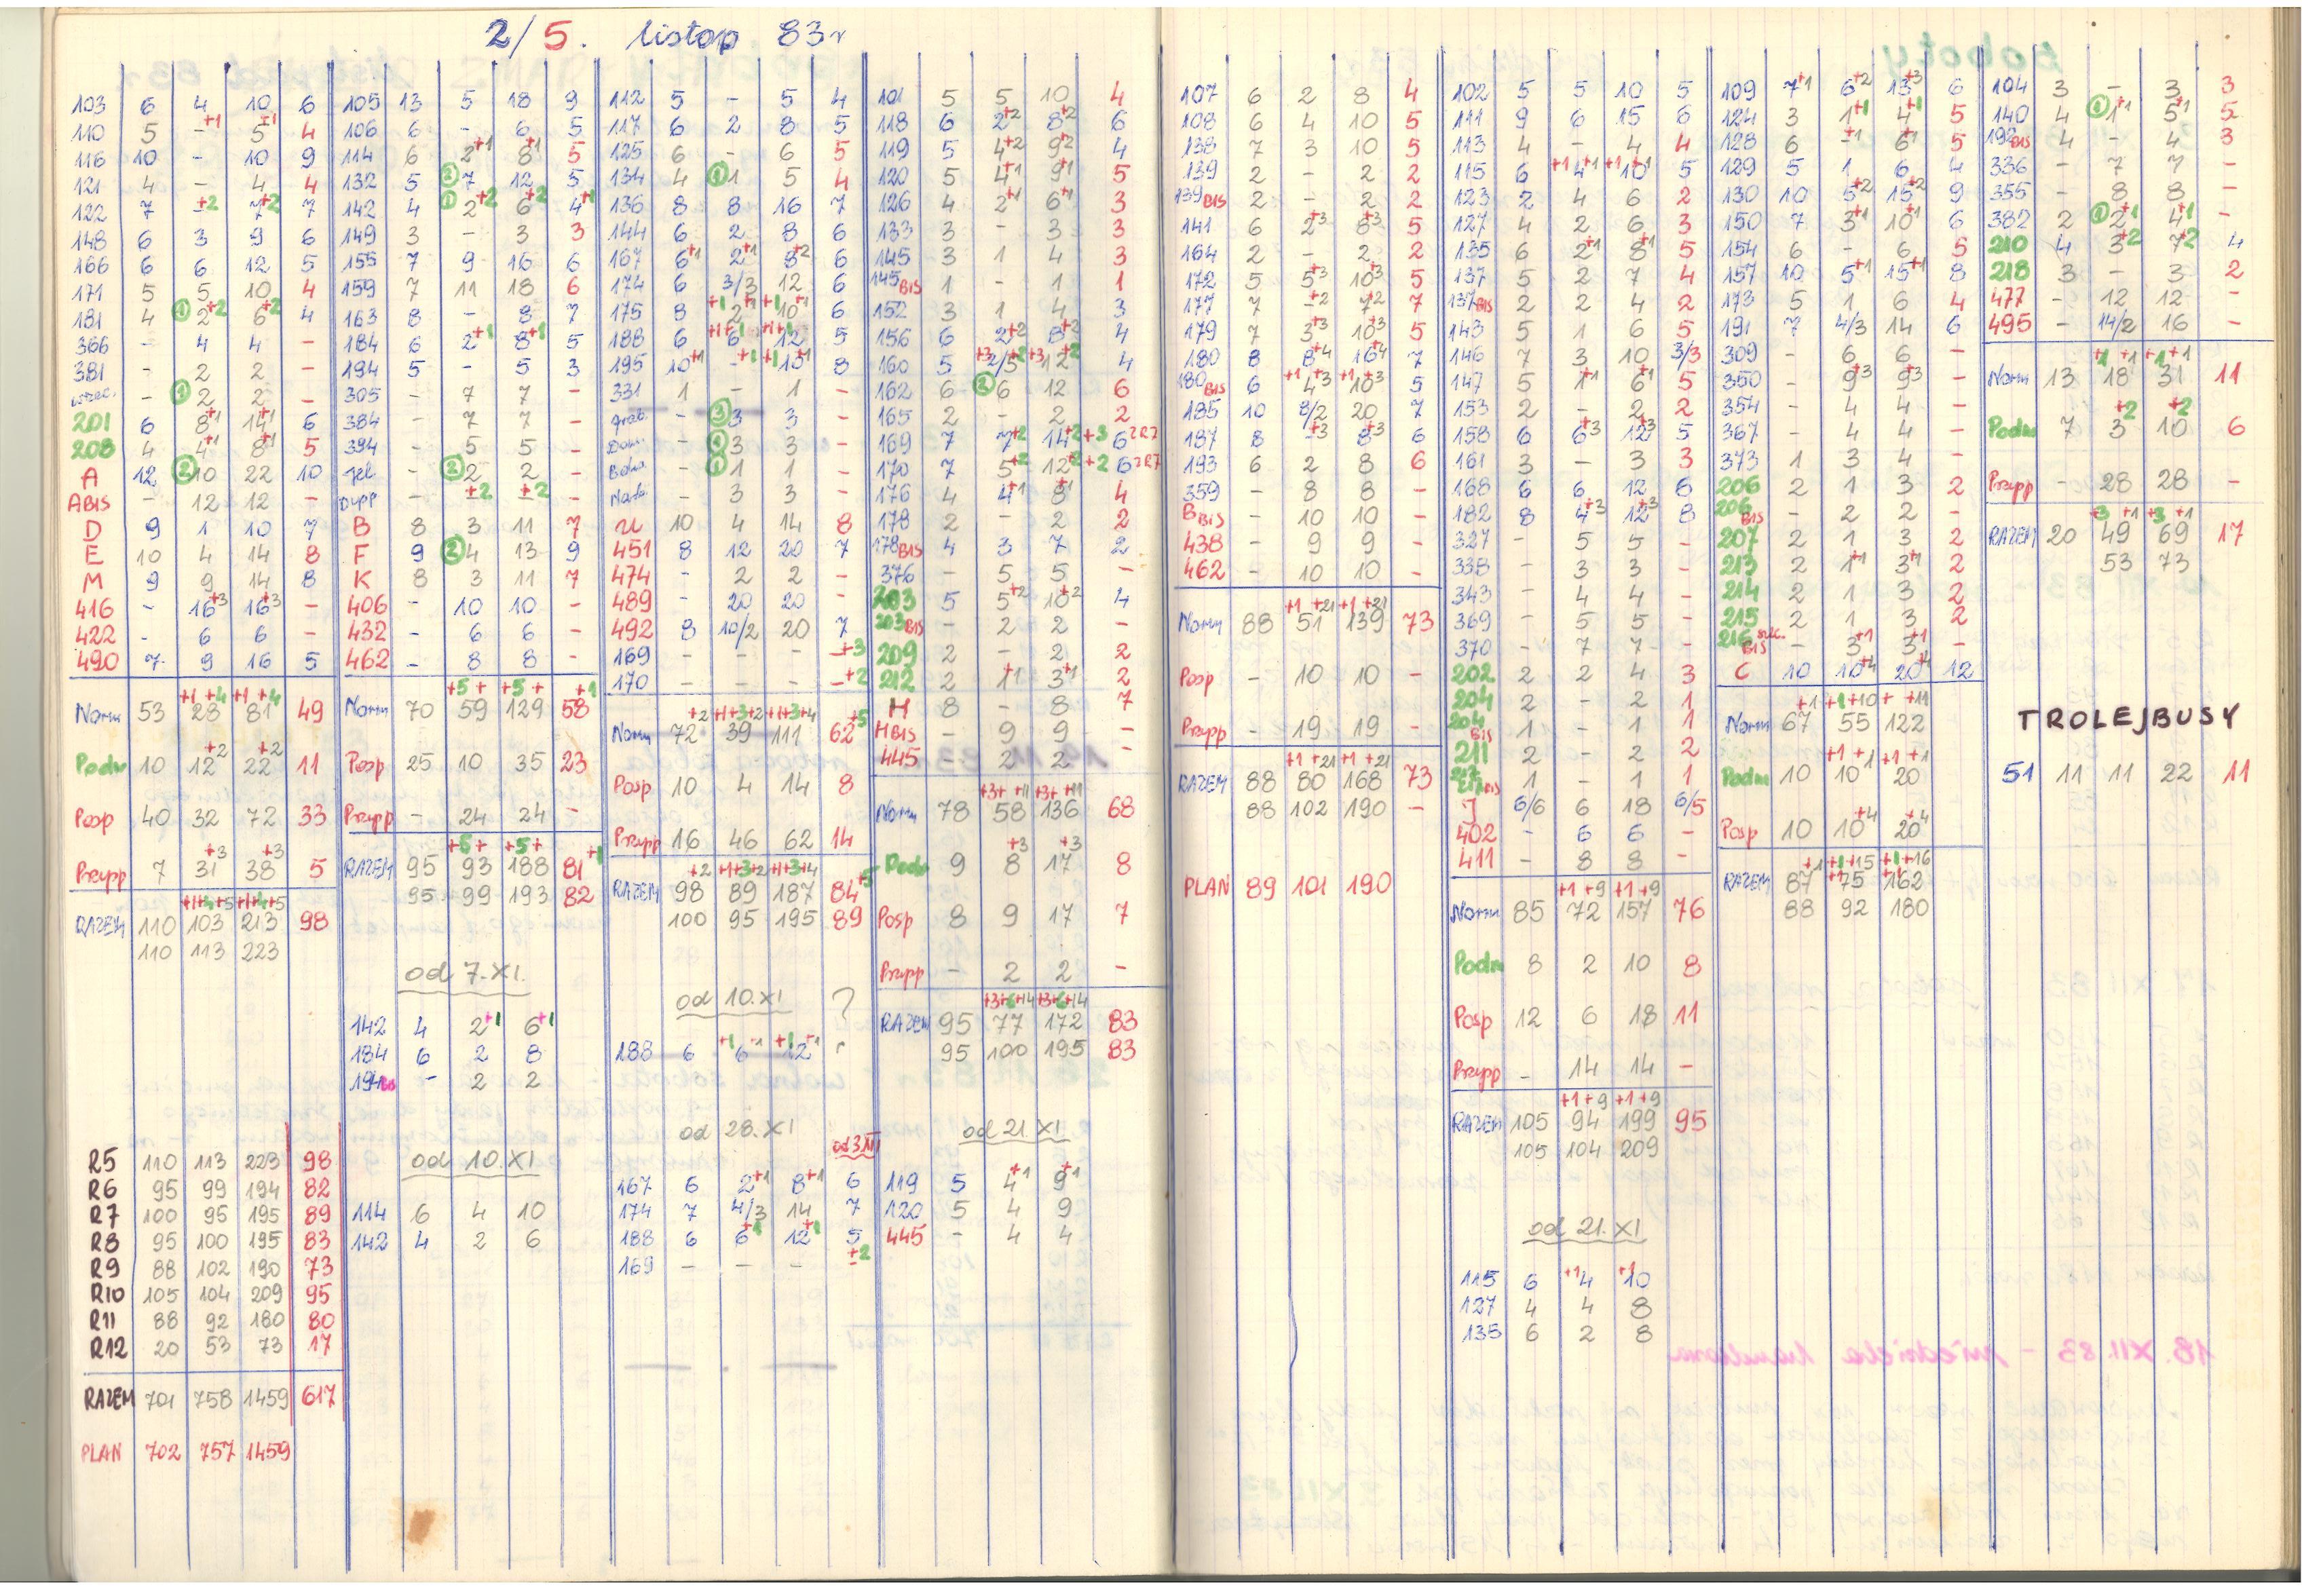 2/5. listop 83r
103 6 4 10 6
110 5 - +1 5 +1 4
116 10 - 10 9
121 4 - 4 4
122 7 - +2 7 +2 7
148 6 3 9 6
166 6 6 12 5
171 5 5 10 4
181 4 ① 2 +2 6 +2 4
366 - 4 4 -
381 - 2 2 -
- ① 2 2 -
201 6 8 +1 14 +1 6
208 4 4 +1 8 +1 5
A 12 ② 10 22 10
ABIS - 12 12 -
D 9 1 10 7
E 10 4 14 8
M 9 9 14 8
416 - 16 +3 16 +3 -
422 - 6 6 -
490 7 9 16 5
Norm 53 28 +1 +4 81 +1 +4 49
Podm 10 12 +2 22 +2 11
Posp 40 32 72 33
Przysp 7 31 +3 38 +3 5
RAZEM 110 103 213 98
110 113 223
R5 110 113 223 98
R6 95 99 194 82
R7 100 95 195 89
R8 95 100 195 83
R9 88 102 190 73
R10 105 104 209 95
R11 88 92 180 80
R12 20 53 73 17
RAZEM 701 758 1459 617
PLAN 702 757 1459
105 13 5 18 9
106 6 - 6 5
114 6 2 +1 8 +1 5
132 5 ② 7 12 5
142 4 ① 2 +2 6 +2 4 +1
149 3 - 3 3
155 7 9 16 6
159 7 11 18 6
163 8 - 8 7
184 6 2 +1 8 +1 5
194 5 - 5 3
305 - 7 7 -
384 - 7 7 -
394 - 5 5 -
- ② 2 2 -
- +2 +2 -
B 8 3 11 7
F 9 ② 4 13 9
K 8 3 11 7
406 - 10 10 -
432 - 6 6 -
462 - 8 8 -
Norm 70 59 129 58 +1
Posp 25 10 35 23
Przysp - 24 24 -
RAZEM 95 93 188 81 +1
95 99 193 82
od 7.XI.
142 4 2 +1 6 +1
184 6 2 8
194bis - 2 2
od 10.XI
114 6 4 10
142 4 2 6
112 5 - 5 4
117 6 2 8 5
125 6 - 6 5
134 4 ① 1 5 4
136 8 8 16 7
144 6 2 8 6
167 6 +1 2 +1 8 +2 6
174 6 3/3 12 6
175 8 +1 2 +1 +1 10 +1 6
188 6 +1 6 +1 12 5
195 10 +1 - +1 +1 10 +1 8
331 1 - 1 -
- ③ 3 3 -
- ① 3 3 -
- ① 1 1 -
- 3 3 -
U 10 4 14 8
451 8 12 20 7
474 - 2 2 -
489 - 20 20 -
492 8 10/2 20 7
169 - - - +3
170 - - - +2
Norm 72 +2 39 +1+3+2 111 +1+3+4 62 +5
Posp 10 4 14 8
Przysp 16 46 62 14
RAZEM 98 +2 89 +1+3+2 187 +1+3+4 84 +5
100 95 195 89
od 10.XI ?
188 6 +1 6 +1 +1 12 +1
od 28.XI od 3 XII
167 6 2 +1 8 +1 6
174 7 4/3 14 7
188 6 6 +1 12 +1 5
169 - - - +2
101 5 5 10 4
118 6 2 +2 8 +2 6
119 5 4 +2 9 +2 4
120 5 4 +1 9 +1 5
126 4 2 +1 6 +1 3
133 3 - 3 3
145 3 1 4 3
145 BIS 1 - 1 1
152 3 1 4 3
156 6 2 +2 8 +2 4
160 5 +3 2/5 +2 +3 12 +2 4
162 6 ② 6 12 6
165 2 - 2 2
169 7 7 +2 14 +2 +3 6 2R7
170 7 5 +2 12 +2 +2 6 2R7
176 4 4 +1 8 +1 4
178 2 - 2 2
178 BIS 4 3 7 2
376 - 5 5 -
203 5 5 +2 10 +2 4
203 BIS - 2 2 -
209 2 - 2 2
212 2 1 +1 3 +1 2
H 8 - 8 7
HBIS - 9 9 -
445 - 2 2 -
Norm 78 58 +3+ +11 136 +3+ +11 68
Podm 9 8 +3 17 +3 8
Posp 8 9 17 7
Przysp - 2 2 -
RAZEM 95 77 +3+6+14 172 +3+6+14 83
95 100 195 83
od 21.XI
119 5 4 +1 9 +1
120 5 4 9
445 - 4 4
107 6 2 8 4
108 6 4 10 5
138 7 3 10 5
139 2 - 2 2
139 BIS 2 - 2 2
141 6 2 +3 8 +3 5
164 2 - 2 2
172 5 5 +3 10 +3 5
177 7 - +2 7 +2 7
179 7 3 +3 10 +3 5
180 8 8 +4 16 +4 7
180 BIS 6 +1 4 +3 +1 10 +3 5
185 10 8/2 20 7
187 8 - +3 8 +3 6
193 6 2 8 6
359 - 8 8 -
B BIS - 10 10 -
438 - 9 9 -
462 - 10 10 -
Norm 88 51 +1 +21 139 +1 +21 73
Posp - 10 10 -
Przysp - 19 19 -
RAZEM 88 80 +1 +21 168 +1 +21 73
88 102 190 -
PLAN 89 101 190
102 5 5 10 5
111 9 6 15 6
113 4 - 4 4
115 6 +1 4 +1 +1 10 +1 5
123 2 4 6 2
127 4 2 6 3
135 6 2 +1 8 +1 5
137 5 2 7 4
137 BIS 2 2 4 2
143 5 1 6 5
146 7 3 10 3/3
147 5 1 +1 6 +1 5
153 2 - 2 2
158 6 6 +3 12 +3 5
161 3 - 3 3
168 6 6 12 6
182 8 4 +3 12 +3 8
327 - 5 5 -
338 - 3 3 -
343 - 4 4 -
369 - 5 5 -
370 - 7 7 -
202 2 2 4 3
204 2 - 2 1
204 BIS 1 - 1 1
211 2 - 2 2
BIS 1 - 1 1
J 6/6 6 18 6/5
402 - 6 6 -
411 - 8 8 -
Norm 85 72 +1 +9 157 +1 +9 76
Podm 8 2 10 8
Posp 12 6 18 11
Przysp - 14 14 -
RAZEM 105 94 +1 +9 199 +1 +9 95
105 104 209
od 21.XI
115 6 +1 4 +1 10
127 4 4 8
135 6 2 8
109 7 +1 6 +2 13 +3 6
124 3 1 +1 4 +1 5
128 6 - +1 6 +1 5
129 5 1 6 4
130 10 5 +2 15 +2 9
150 7 3 +1 10 +1 6
154 6 - 6 5
157 10 5 +1 15 +1 8
173 5 1 6 4
191 7 4/3 14 6
309 - 6 6 -
350 - 9 +3 9 +3 -
354 - 4 4 -
367 - 4 4 -
373 1 3 4 -
206 2 1 3 2
206 BIS - 2 2 -
207 2 1 3 2
213 2 1 +1 3 +1 2
214 2 1 3 2
215 2 1 3 2
216 BIS - 3 +1 3 +1 -
C 10 10 +4 20 +4 12
Norm 67 +1 55 +1+10 122 + +11
Podm 10 10 +1 +1 20 +1 +1
Posp 10 10 +4 20 +4
RAZEM 87 +1 75 +1+15 162 +1+16
88 92 180
104 3 - 3 3
140 4 ① 1 +1 5 +1 5
192 BIS 4 - 4 3
336 - 7 7 -
355 - 8 8 -
382 2 ① 2 +1 4 +1 -
210 4 3 +2 7 +2 4
218 3 - 3 2
477 - 12 12 -
495 - 14/2 16 -
Norm 13 18 +1 +1 31 +1 +1 11
Podm 7 3 +2 10 +2 6
Przysp - 28 28 -
RAZEM 20 49 +3 +1 69 +3 +1 17
53 73
TROLEJBUSY
51 11 11 22 11